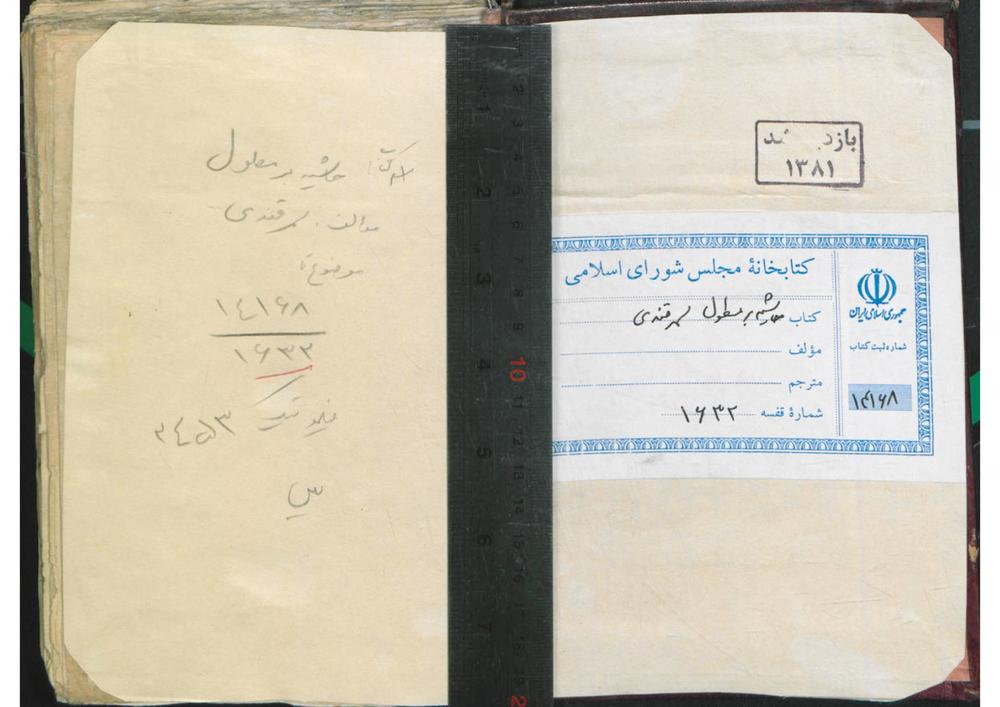 بازد ـد
۱۳۸۱
کتابخانهٔ مجلس شورای اسلامی
کتاب حاشیه بر مطول سمرقندی
مؤلف
مترجم
شمارهٔ قفسه ۱۶۳۲
جمهوری اسلامی ایران
شماره ثبت کتاب
۱۴۱۶۸
اسم کتاب: حاشیه بر مطول
مؤلف: سمرقندی
موضوع:
۱۴۱۶۸
۱۶۳۲
1
2
3
4
5
6
7
2
3
4
5
6
7
8
9
10
11
12
13
14
15
16
17
18
19
2